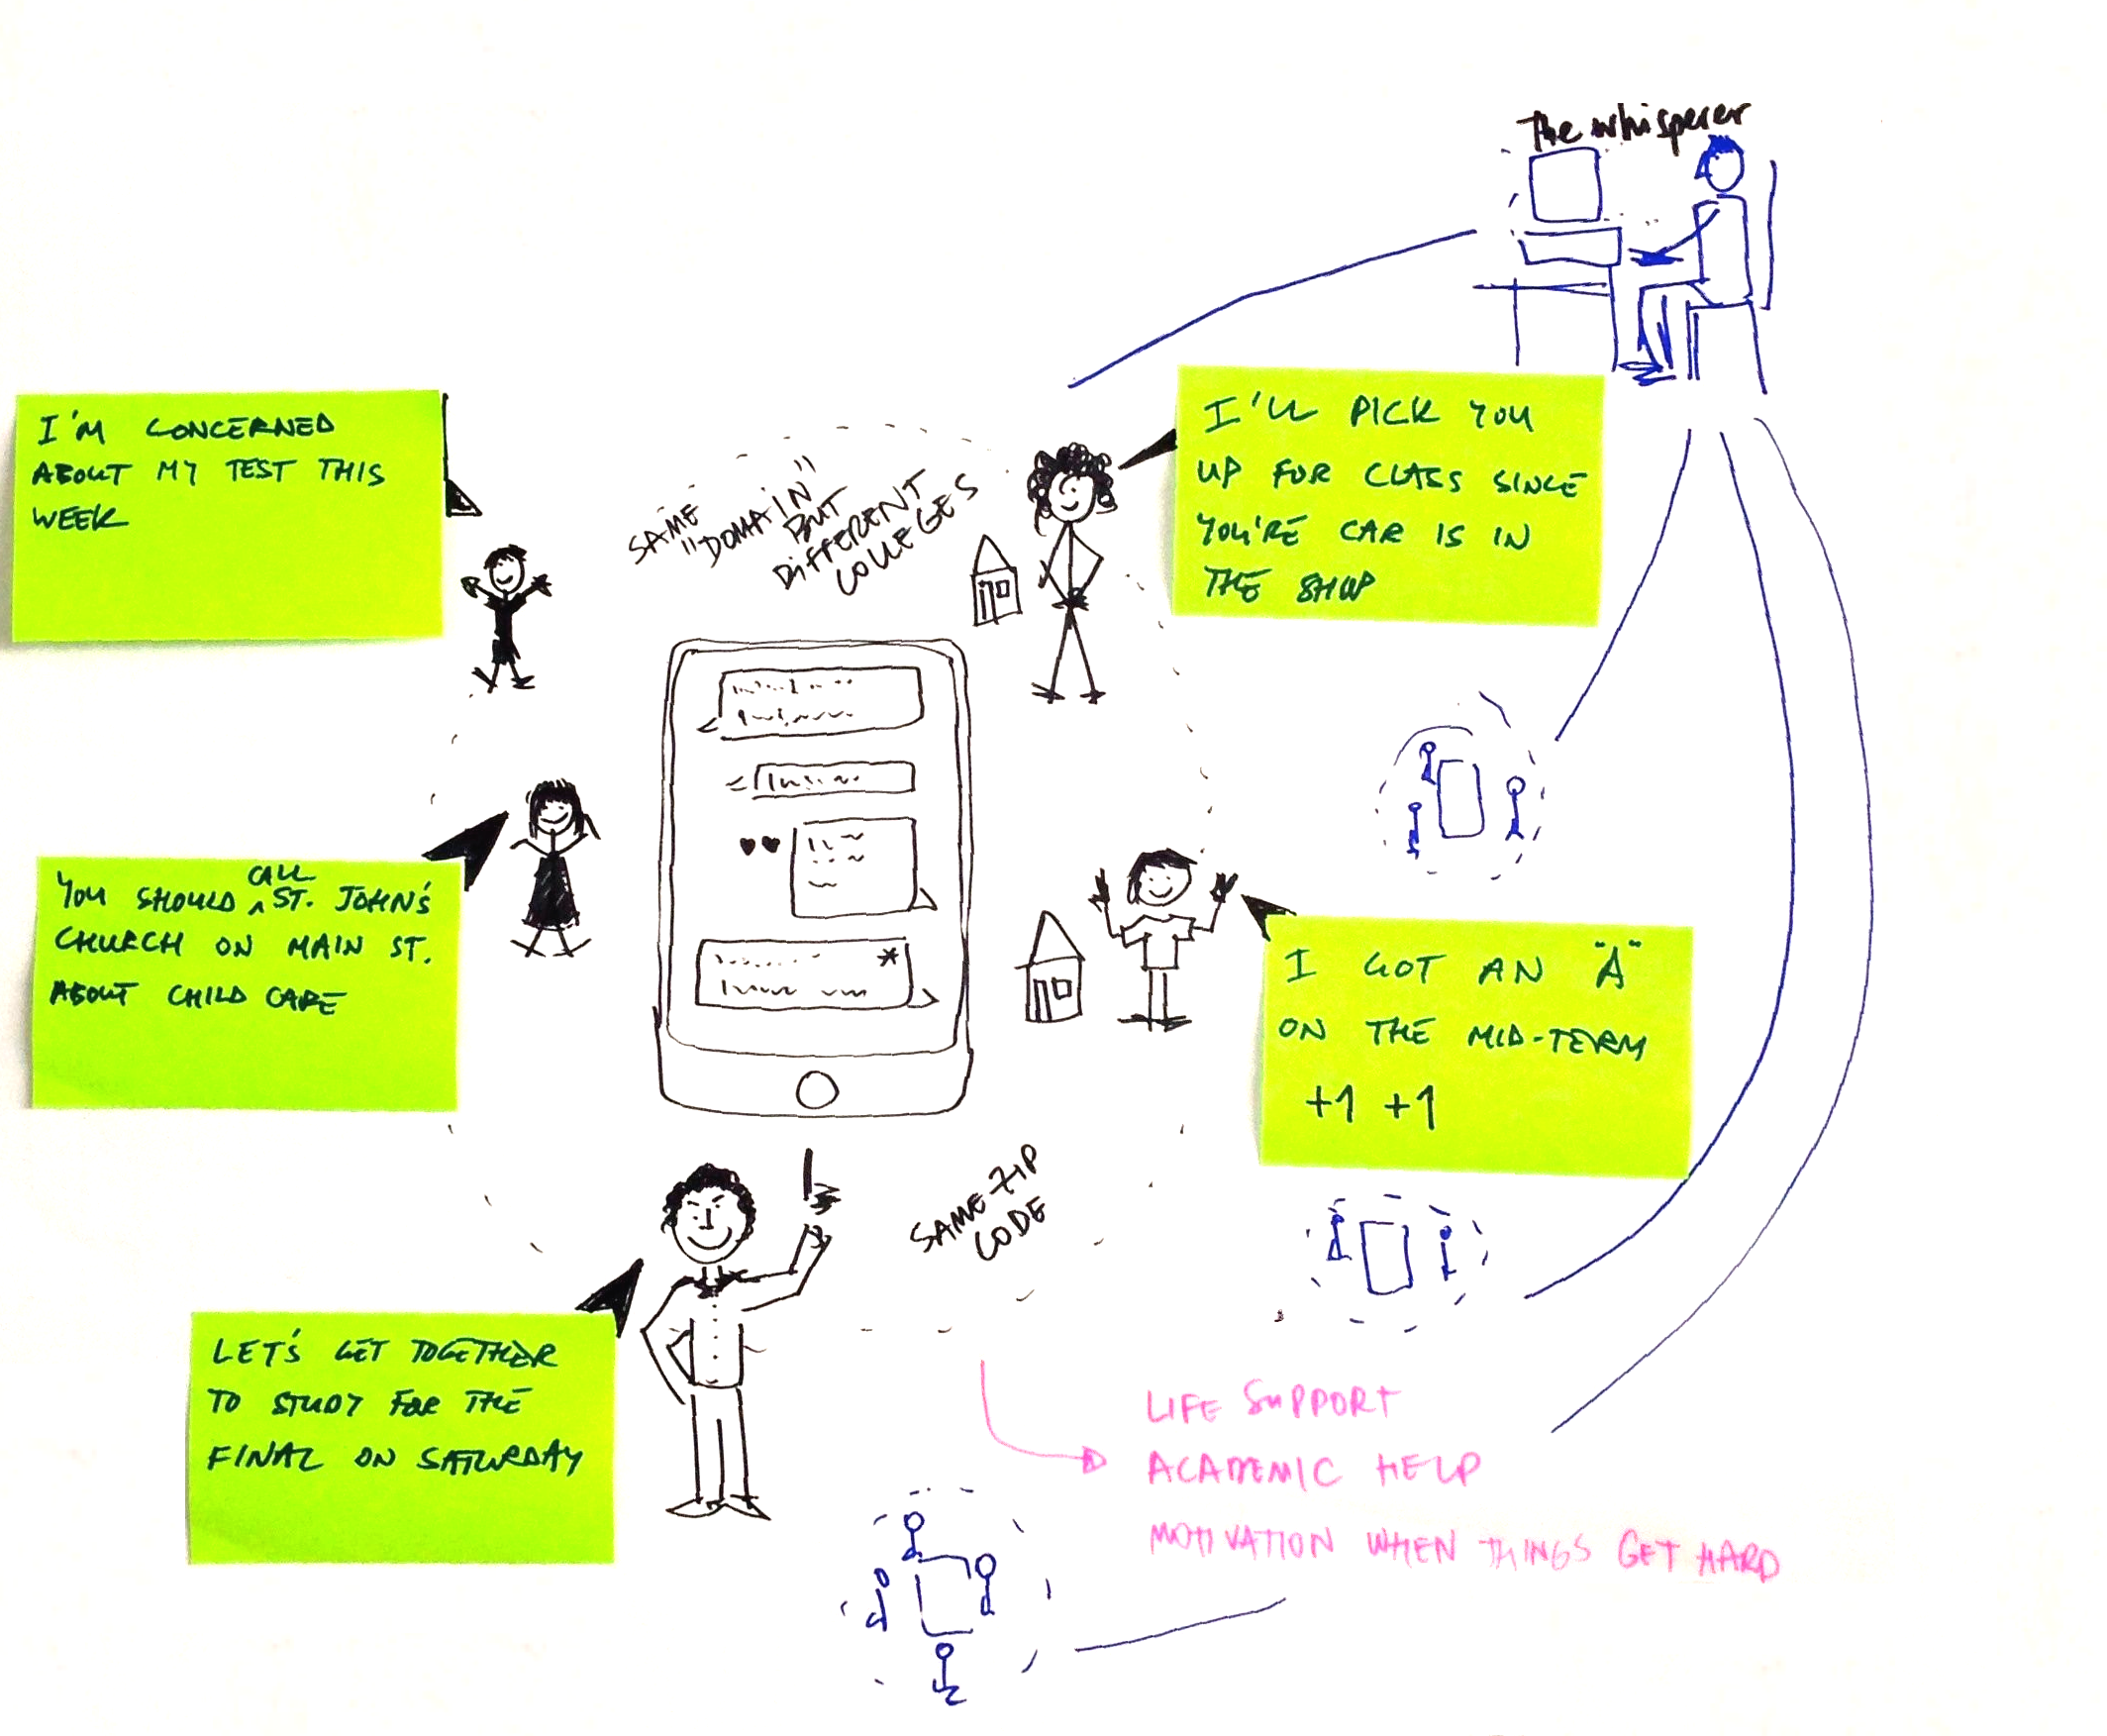 The whisperer
I'M CONCERNED
ABOUT MY TEST THIS
WEEK
SAME
"DOMAIN"
BUT
DIFFERENT
COLLEGES
I'LL PICK YOU
UP FOR CLASS SINCE
YOU'RE CAR IS IN
THE SHOP
YOU SHOULD CALL ST. JOHN'S
CHURCH ON MAIN ST.
ABOUT CHILD CARE
I GOT AN "A"
ON THE MID-TERM
+1 +1
SAME ZIP
CODE
LET'S GET TOGETHER
TO STUDY FOR THE
FINAL ON SATURDAY
LIFE SUPPORT
ACADEMIC HELP
MOTIVATION WHEN THINGS GET HARD